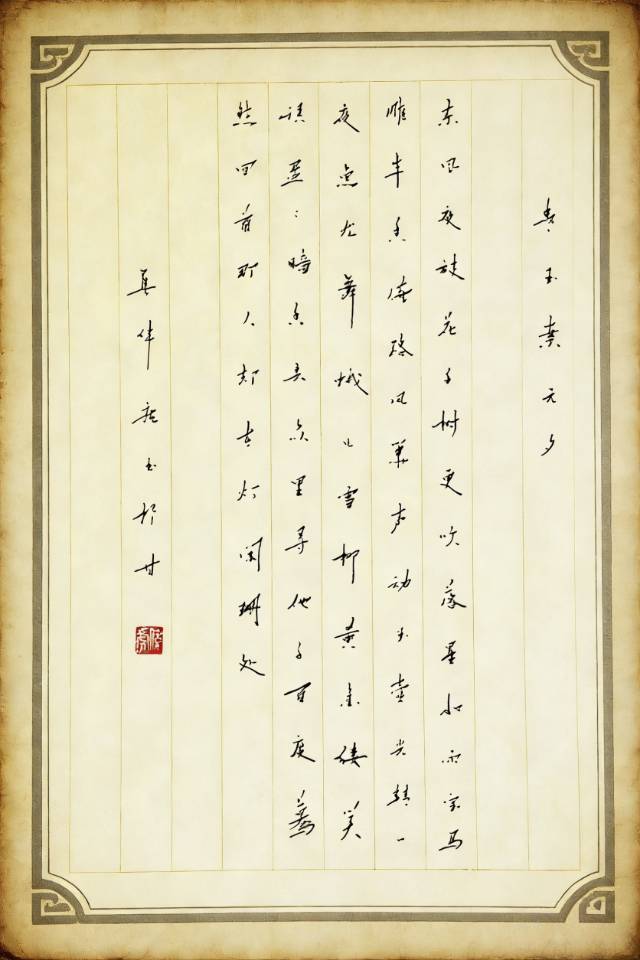 青玉案元夕
东风夜放花千树更吹落星如雨宝马
雕车香满路凤箫声动玉壶光转一
夜鱼龙舞蛾儿雪柳黄金缕笑
语盈：暗香去众里寻他千百度蓦
然回首那人却在灯阑珊处
书于甘